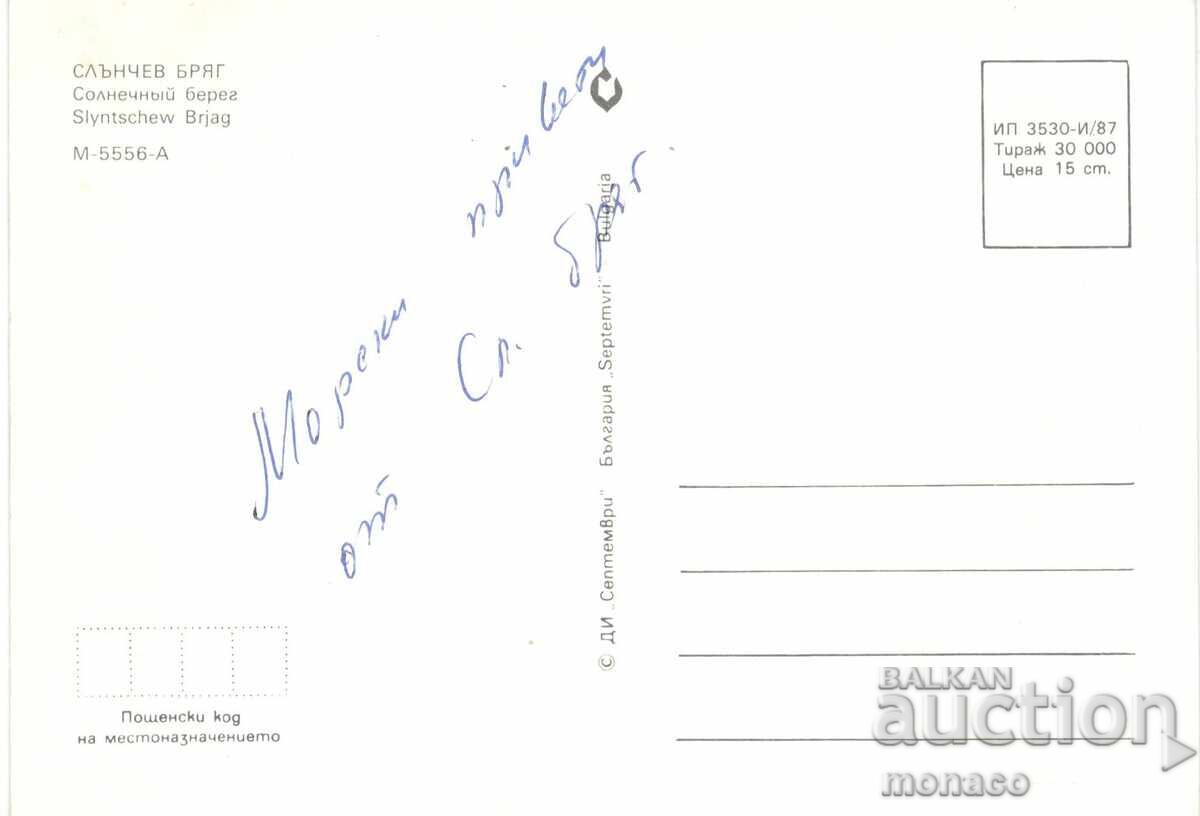 СЛЪНЧЕВ БРЯГ
Солнечный берег
Slyntschew Brjag
М-5556-А
Морски привет
от Сл. бряг.
© ДИ „Септември" България „Septemvri" Bulgaria
ИП 3530-И/87
Тираж 30 000
Цена 15 ст.
Пощенски код
на местоназначението
BALKAN
auction
monaco